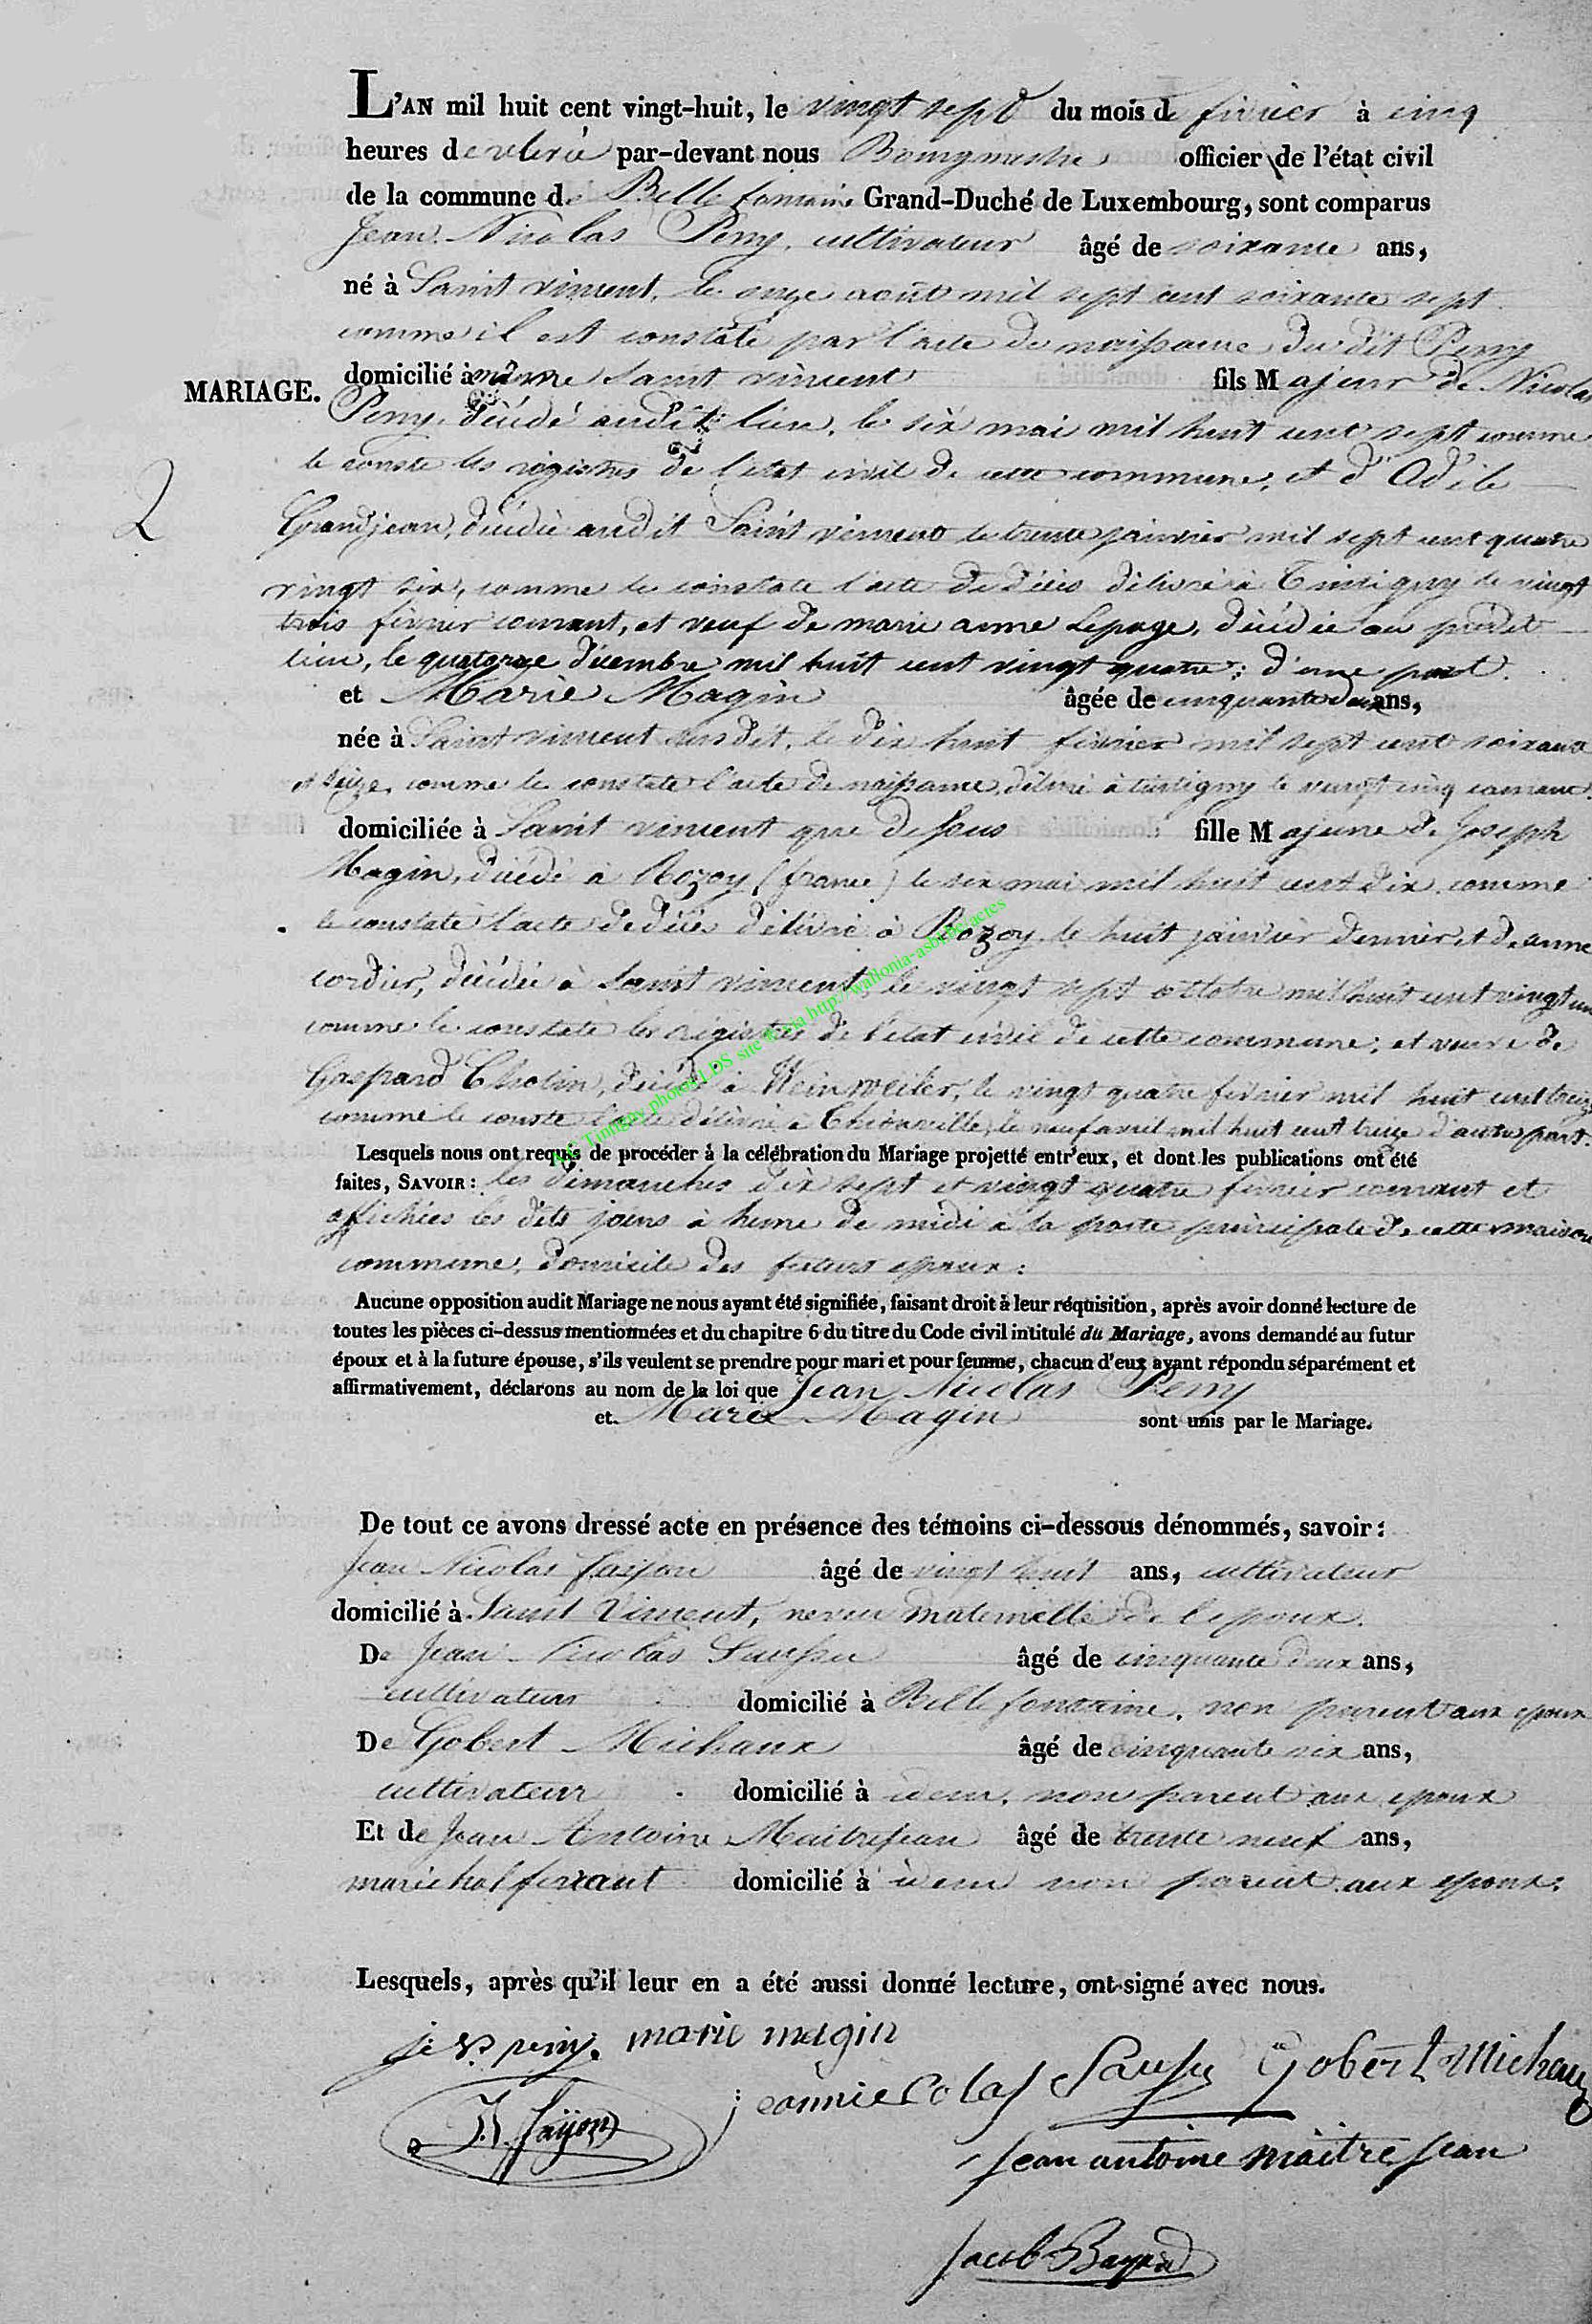 L'AN mil huit cent vingt-huit, le vingt sept du mois de fivrier à cinq
heures de rlevée par-devant nous Bourgmestre officier de l'état civil
de la commune de Bellefontaine Grand-Duché de Luxembourg, sont comparus
Jean Nicolas Perry, cultivateur âgé de soixante ans,
né à Saint vincent, le onze août mil sept cent soixante sept
comme il est constaté par l'acte de naissance du dit Perry
MARIAGE. domicilié à même Saint vincent fils Majeur de Nicolas
Perry, décédé audit lieu, le six mai mil huit cent sept comme
le conste les régistres de l'état civil de cette commune, et d'Odile
2
Grandjean, décédée audit Saint vincent le trente janvier mil sept cent quatre
vingt six, comme le constate l'acte de décès délivré à Tintigny le vingt
trois février courant, et veuf de marie anne Lepage, décédée au prédit
lieu, le quatorze décembre mil huit cent vingt quatre; d'une part.
et Marie Magin âgée de cinquante deux ans,
née à Saint vincent susdit, le dix huit février mil sept cent soixante
et seize, comme le constate l'acte de naissance, délivré à tintigny le vingt cinq courant.
domiciliée à Saint vincent que dessus fille Majeure de Joseph
Magin, décédé à Rozoy (france) le six mai mil huit cent dix comme
le constate l'acte de décès délivré à Rozoy le huit janvier dernier, et de anne
cordier, décédée à Saint vincent, le vingt sept octobre mil huit cent vingt un
comme le constate les régistres de l'état civil de cette commune; et veuve de
Gaspard Cholin, décédé à Weinweiler, le vingt quatre février mil huit cent treize
comme le conste l'acte délivré à Thionville, le neuf avril mil huit cent treize d'autre part.
Tintigny photos LDS site via http://wallonia-asbl.be/actes
Lesquels nous ont requis de procéder à la célébration du Mariage projetté entr'eux, et dont les publications ont été
faites, SAVOIR: les dimanches dix sept et vingt quatre février courant et
affichées les dits jours à heure de midi à la porte principale de cette maison
commune, domicile des futurs epoux:
Aucune opposition audit Mariage ne nous ayant été signifiée, faisant droit à leur réquisition, après avoir donné lecture de
toutes les pièces ci-dessus mentionnées et du chapitre 6 du titre du Code civil intitulé du Mariage, avons demandé au futur
époux et à la future épouse, s'ils veulent se prendre pour mari et pour femme, chacun d'eux ayant répondu séparément et
affirmativement, déclarons au nom de la loi que Jean Nicolas Perry
et Marie Magin sont unis par le Mariage.
De tout ce avons dressé acte en présence des témoins ci-dessous dénommés, savoir:
Jean Nicolas fayon âgé de vingt huit ans, cultivateur
domicilié à Saint Vincent, neveu maternelle de l'epoux.
De Jean Nicolas Saussu âgé de cinquante deux ans,
cultivateur domicilié à Bellefontaine, non parent aux epoux
De Gobert Michaux âgé de cinquante six ans,
cultivateur domicilié à idem, non parent aux epoux
Et de Jean Antoine Maitrejean âgé de trente neuf ans,
maréchal ferrant domicilié à idem non parent aux epoux.
Lesquels, après qu'il leur en a été aussi donné lecture, ont signé avec nous.
marie magin
J. fayon
jeannicolas Sausu Gobert Michaux
jean antoine maitre jean
Jacob Bayard